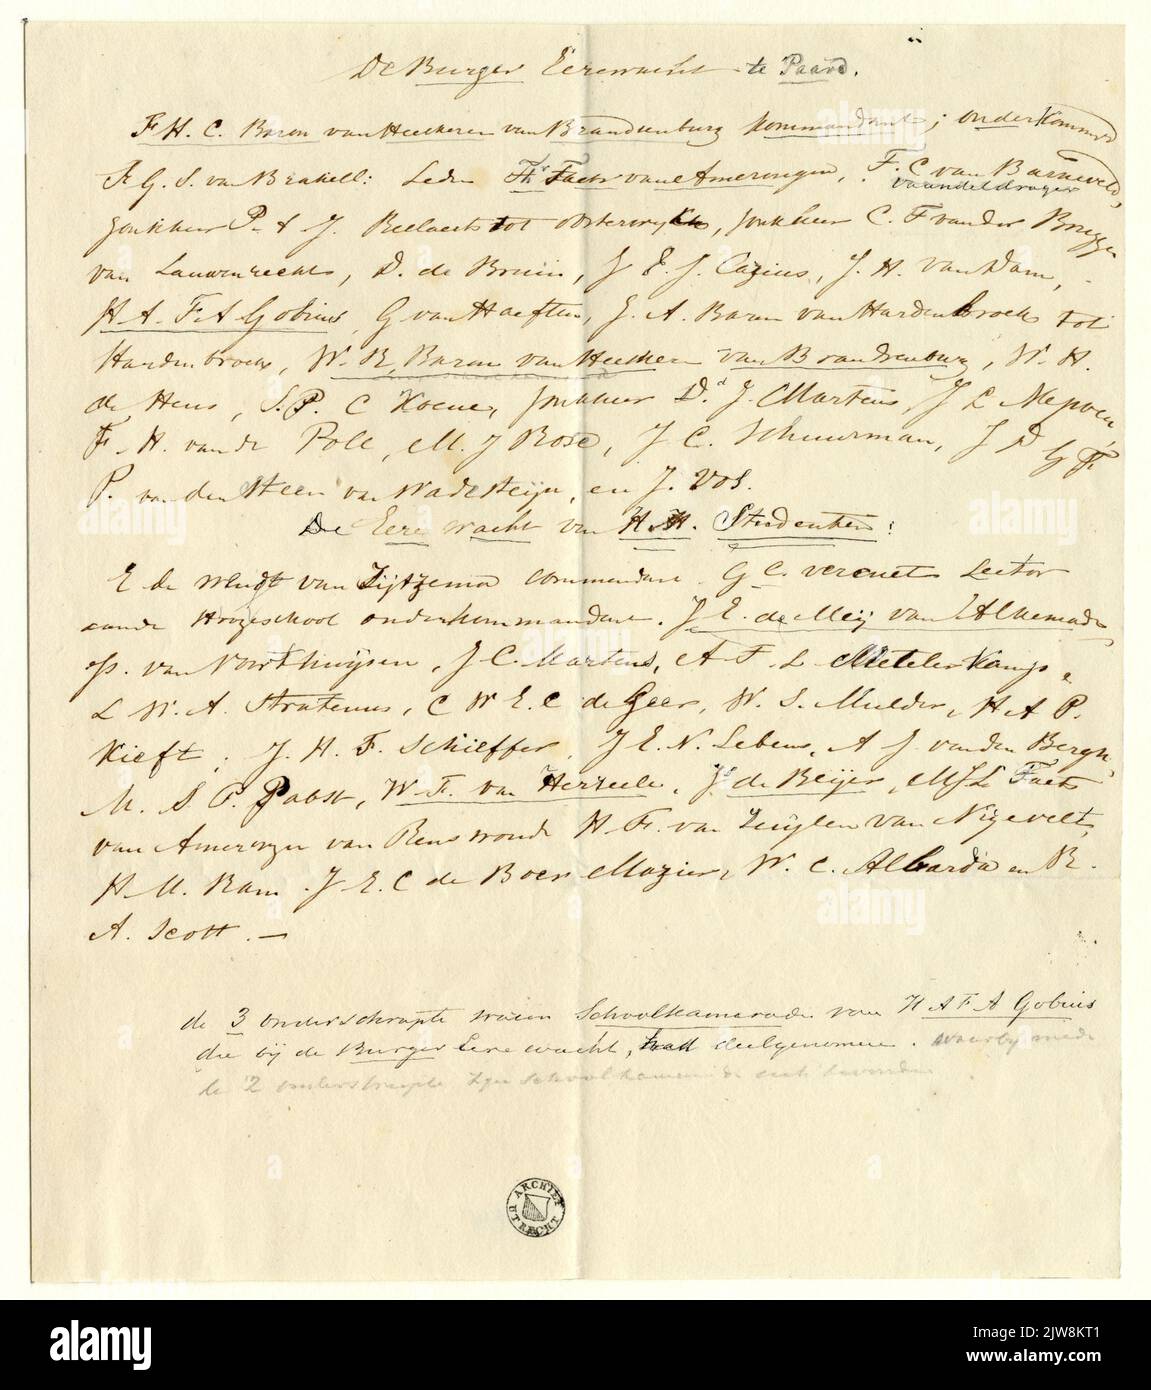 De Burger Eerewacht te Paard.
F. H. C. Baron van Heeckeren van Brandenburg kommandant; onderkommand
F. G. S. van Brakell: Leden Th. Taets van Amerongen, F. C van Barneveld,
vaandeldrager
Jonkheer P. & J. Beelaerts tot Oosterwyk, Jonkheer C. F van der Brugge
van Lauwenrechts, D. de Bruin, J. J. Cazius, J. H. van Dam,
H. A. F. A Gobius, G van Haeften, J. A. Baron van Hardenbroek tot
Hardenbroek, W. R. Baron van Heeckeren van Brandenburg, W. H.
de Heus, S. P. C Koene, Jonkheer Dd J. Martens, J L Nepveu,
F. H. van de Poll, M. J Rose, J. C. Schuurman, J D G F
P. van den Steen van Wadesteijn, en J. Vos.
De Eere wacht van H.H. Studenten:
E de van Zijtzema commandant. G C. Vereuet Lector
aande Hoogeschool onderkommandant. J. E. de Meij van Alkemade
Js. van Voorthuijsen, J C. Martens, A F. L Metelerkamp,
L W. A. Stratenus, C W E. C de Geer, W. S. Mulder, H A P.
Kieft; J. H. F. Schieffer, J E. N. Lebens, A J. van den Bergh,
M. S. P. Pabst, W. F. van Herzeele, Js de Beijer, M J L Taets
van Amerongen van Renswoude H. F. van Zuijlen van Nijevelt,
H. M. Ram. J. E. C de Boer Mazier, W. C. Albarda en R.
A. Scott. —
de 3 onderschrapte waren Schoolkameraden van H A F A Gobius
die bij de Burger Eere wacht, had deelgenomen. waarbij mede
de 2 onderstreepte zijn schoolkameraden
ARCHIEF UTRECHT
alamy
Image ID: 2JW8KT1
www.alamy.com